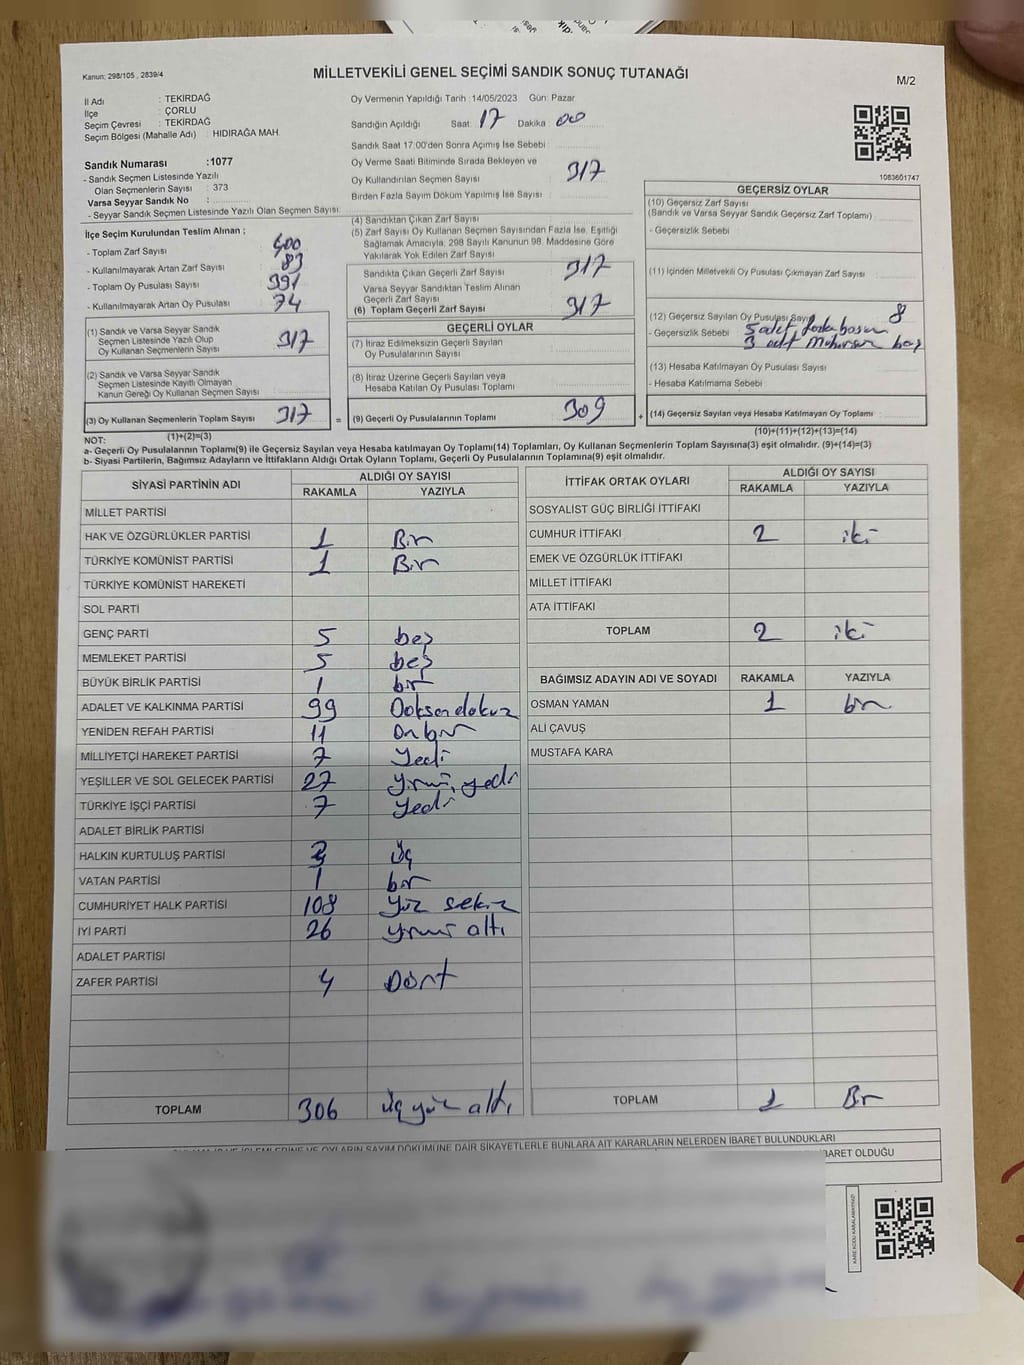 Kanun: 298/105 , 2839/4
MİLLETVEKİLİ GENEL SEÇİMİ SANDIK SONUÇ TUTANAĞI
M/2
İl Adı : TEKİRDAĞ
İlçe : ÇORLU
Seçim Çevresi : TEKİRDAĞ
Seçim Bölgesi (Mahalle Adı) : HIDIRAĞA MAH.
Oy Vermenin Yapıldığı Tarih :14/05/2023 Gün: Pazar
Sandığın Açıldığı Saat: 17 Dakika : 00
Sandık Saat 17:00'den Sonra Açımış İse Sebebi :
Oy Verme Saati Bitiminde Sırada Bekleyen ve
Oy Kullandırılan Seçmen Sayısı : 317
Birden Fazla Sayım Döküm Yapılmış İse Sayısı :
Sandık Numarası :1077
- Sandık Seçmen Listesinde Yazılı
Olan Seçmenlerin Sayısı : 373
Varsa Seyyar Sandık No :
- Seyyar Sandık Seçmen Listesinde Yazılı Olan Seçmen Sayısı:
1083601747
İlçe Seçim Kurulundan Teslim Alınan ;
- Toplam Zarf Sayısı : 400
- Kullanılmayarak Artan Zarf Sayısı : 83
- Toplam Oy Pusulası Sayısı : 391
- Kullanılmayarak Artan Oy Pusulası : 74
(1) Sandık ve Varsa Seyyar Sandık
Seçmen Listesinde Yazılı Olup
Oy Kullanan Seçmenlerin Sayısı : 317
(2) Sandık ve Varsa Seyyar Sandık
Seçmen Listesinde Kayıtlı Olmayan
Kanun Gereği Oy Kullanan Seçmen Sayısı :
(3) Oy Kullanan Seçmenlerin Toplam Sayısı : 317 =
(1)+(2)=(3)
(4) Sandıktan Çıkan Zarf Sayısı :
(5) Zarf Sayısı Oy Kullanan Seçmen Sayısından Fazla İse, Eşitliği
Sağlamak Amacıyla, 298 Sayılı Kanunun 98. Maddesine Göre
Yakılarak Yok Edilen Zarf Sayısı :
Sandıkta Çıkan Geçerli Zarf Sayısı : 317
Varsa Seyyar Sandıktan Teslim Alınan
Geçerli Zarf Sayısı :
(6) Toplam Geçerli Zarf Sayısı : 317
GEÇERLİ OYLAR
(7) İtiraz Edilmeksizin Geçerli Sayılan
Oy Pusulalarının Sayısı :
(8) İtiraz Üzerine Geçerli Sayılan veya
Hesaba Katılan Oy Pusulası Toplamı :
(9) Geçerli Oy Pusulalarının Toplamı : 309 +
GEÇERSİZ OYLAR
(10) Geçersiz Zarf Sayısı
(Sandık ve Varsa Seyyar Sandık Geçersiz Zarf Toplamı) :
- Geçersizlik Sebebi :
(11) İçinden Milletvekili Oy Pusulası Çıkmayan Zarf Sayısı :
(12) Geçersiz Sayılan Oy Pusulası Sayısı : 8
- Geçersizlik Sebebi : 5 adet fazla basım
3 adt Mühürsüz boş
(13) Hesaba Katılmayan Oy Pusulası Sayısı :
- Hesaba Katılmama Sebebi :
(14) Geçersiz Sayılan veya Hesaba Katılmayan Oy Toplamı :
(10)+(11)+(12)+(13)=(14)
NOT:
a- Geçerli Oy Pusulalarının Toplamı(9) ile Geçersiz Sayılan veya Hesaba katılmayan Oy Toplamı(14) Toplamları, Oy Kullanan Seçmenlerin Toplam Sayısına(3) eşit olmalıdır. (9)+(14)=(3)
b- Siyasi Partilerin, Bağımsız Adayların ve İttifakların Aldığı Ortak Oyların Toplamı, Geçerli Oy Pusulalarının Toplamına(9) eşit olmalıdır.
SİYASİ PARTİNİN ADI ALDIĞI OY SAYISI
RAKAMLA YAZIYLA
MİLLET PARTİSİ
HAK VE ÖZGÜRLÜKLER PARTİSİ 1 Bir
TÜRKİYE KOMÜNİST PARTİSİ 1 Bir
TÜRKİYE KOMÜNİST HAREKETİ
SOL PARTİ
GENÇ PARTİ 5 beş
MEMLEKET PARTİSİ 5 beş
BÜYÜK BİRLİK PARTİSİ 1 bir
ADALET VE KALKINMA PARTİSİ 99 Doksan dokuz
YENİDEN REFAH PARTİSİ 11 On bir
MİLLİYETÇİ HAREKET PARTİSİ 7 Yedi
YEŞİLLER VE SOL GELECEK PARTİSİ 27 Yirmi yedi
TÜRKİYE İŞÇİ PARTİSİ 7 Yedi
ADALET BİRLİK PARTİSİ
HALKIN KURTULUŞ PARTİSİ 3 üç
VATAN PARTİSİ 1 bir
CUMHURİYET HALK PARTİSİ 108 Yüz sekiz
İYİ PARTİ 26 yirmi altı
ADALET PARTİSİ
ZAFER PARTİSİ 4 Dört
TOPLAM 306 üç yüz altı
İTTİFAK ORTAK OYLARI ALDIĞI OY SAYISI
RAKAMLA YAZIYLA
SOSYALİST GÜÇ BİRLİĞİ İTTİFAKI
CUMHUR İTTİFAKI 2 iki
EMEK VE ÖZGÜRLÜK İTTİFAKI
MİLLET İTTİFAKI
ATA İTTİFAKI
TOPLAM 2 iki
BAĞIMSIZ ADAYIN ADI VE SOYADI RAKAMLA YAZIYLA
OSMAN YAMAN 1 bir
ALİ ÇAVUŞ
MUSTAFA KARA
TOPLAM 1 Bir
OYLARIN SAYIM DÖKÜMÜNE DAİR ŞİKAYETLERLE BUNLARA AİT KARARLARIN NELERDEN İBARET BULUNDUKLARI
İBARET OLDUĞU
KARE KODU KARALAMAYINIZ!